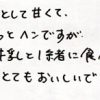 として甘くて、
っとヘンですが、
牛乳と1緒に食べ
とてもおいしいで